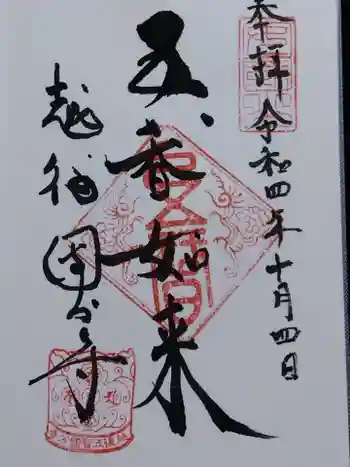 奉拝 令和四年十月四日
五智如来
越後國分寺